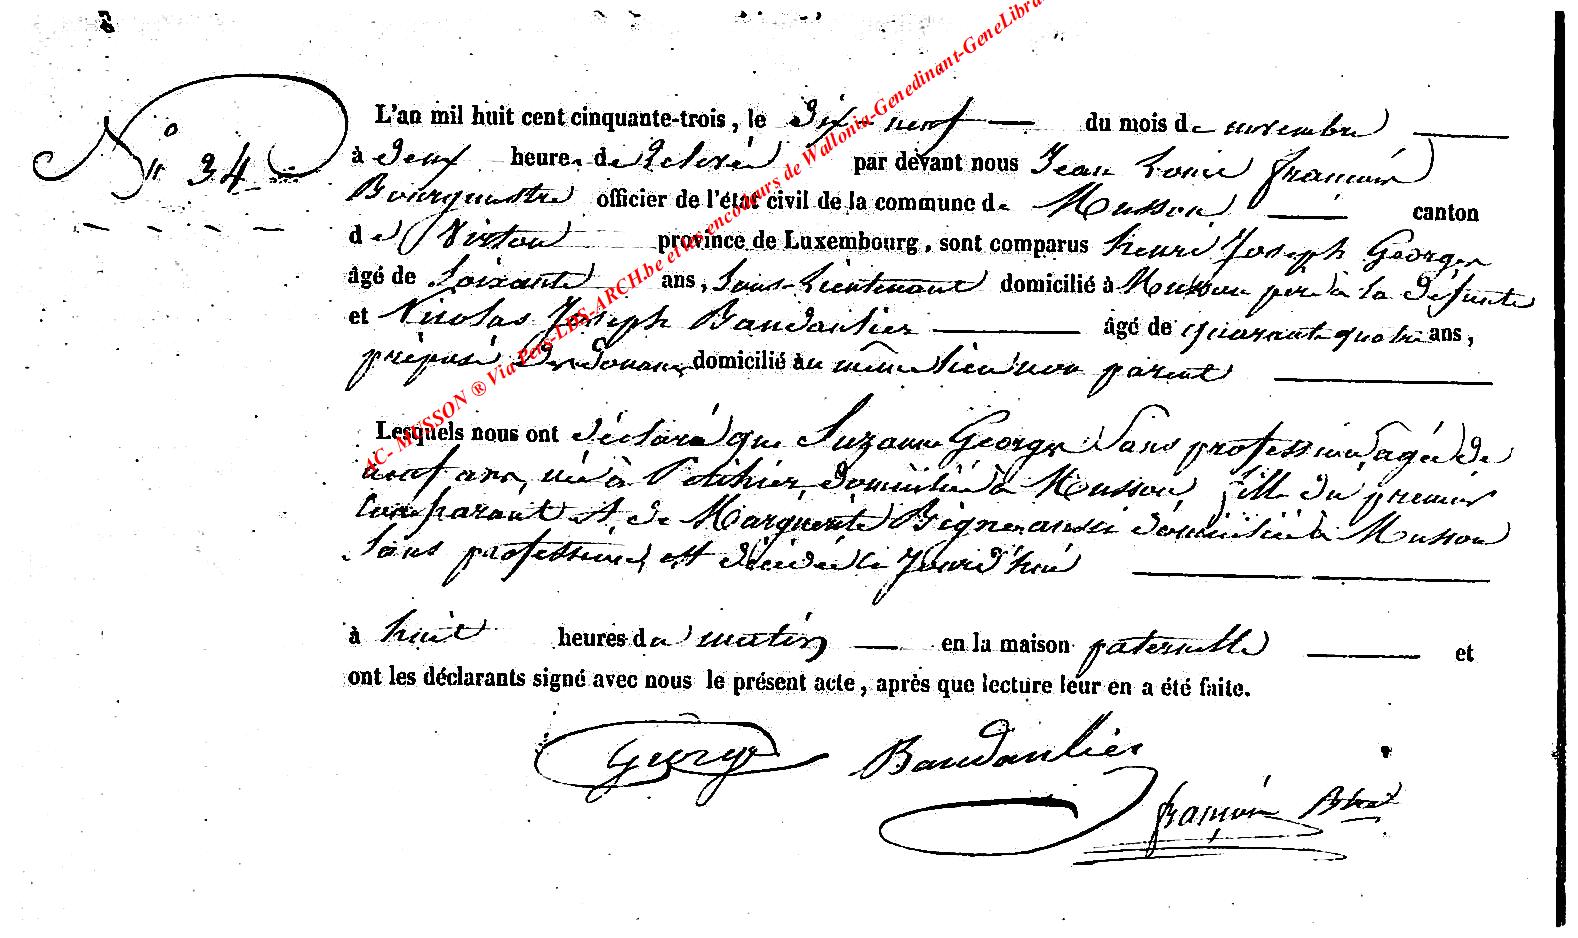 AC- MUSSON ® Via Pers-LDS-ARCH.be et les encodeurs de Wallonia-Genedinant-GeneLibra
N° 34
L'an mil huit cent cinquante-trois, le dix neuf du mois de novembre
à deux heures de relevée par devant nous Jean Louis françois
Bourgmestre officier de l'état civil de la commune de Musson canton
de Virton province de Luxembourg, sont comparus henri Joseph Georges
âgé de soixante ans, Sous-Lieutenant domicilié à Musson père à la défunte
et Nicolas Joseph Baudaulier âgé de quarant quatre ans,
préposé des douanes domicilié au même lieu non parent
Lesquels nous ont déclaré que Suzanne Georges Sans profession, agée de
neuf ans, née à domiciliée à Musson, fille du premier
Comparant et de Marguerite aussi domiciliée à Musson
Sans profession, est décédée ce Jourd'hui
à huit heures du matin en la maison paternelle et
ont les déclarants signé avec nous le présent acte, après que lecture leur en a été faite.
Georges Baudaulier
françois